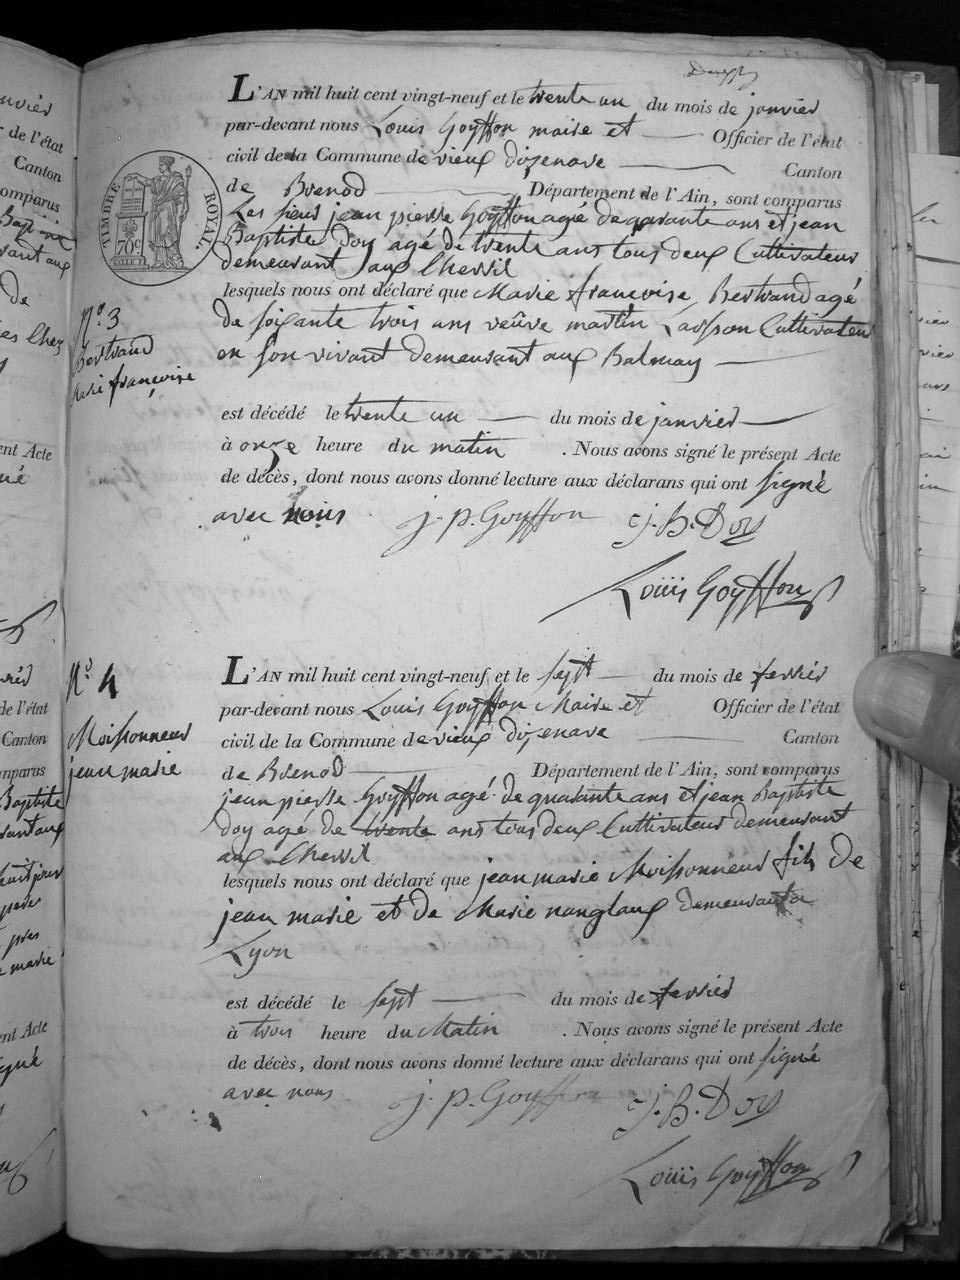 L'AN mil huit cent vingt-neuf et le trente un du mois de janvier
par-devant nous Louis Goyffon maire et Officier de l'état
civil de la Commune de vieux dizenave Canton
de Brenod Département de l'Ain, sont comparus
Les sieurs jean pierre Goyffon agé de qarante ans et jean
Baptiste Doy agé de trente ans tous deux Cultivateur
demeurant aux Chervil
lesquels nous ont déclaré que Marie françoise Bertrand agé
de soixante trois ans veûve martin Cultivateur
en son vivant demeurant aux Balmay
est décédé le trente un du mois de janvier
à onze heure du matin . Nous avons signé le présent Acte
de décès, dont nous avons donné lecture aux déclarans qui ont signé
avec nous j. p. Goyffon j. B. Doy
Louis Goyffon
TIMBRE ROYAL.
70c
N.o 3
Bertrand
Marie françoise
N.o 4
Moissonneur
jean marie
L'AN mil huit cent vingt-neuf et le sept du mois de ferrier
par-devant nous Louis Goyffon Maire et Officier de l'état
civil de la Commune de vieux dizenave Canton
de Brenod Département de l'Ain, sont comparus
jean pierre Goyffon agé de quarante ans et jean Baptiste
doy agé de trente ans tous deux Cultivateur demeurant
aux Chervil
lesquels nous ont déclaré que jean marie Moissonneur fils de
jean marie et de Marie nanglaux demeurant a
Lyon
est décédé le sept du mois de ferrier
à trois heure du Matin . Nous avons signé le présent Acte
de décès, dont nous avons donné lecture aux déclarans qui ont signé
avec nous j. p. Goyffon j. B. Doy
Louis Goyffon